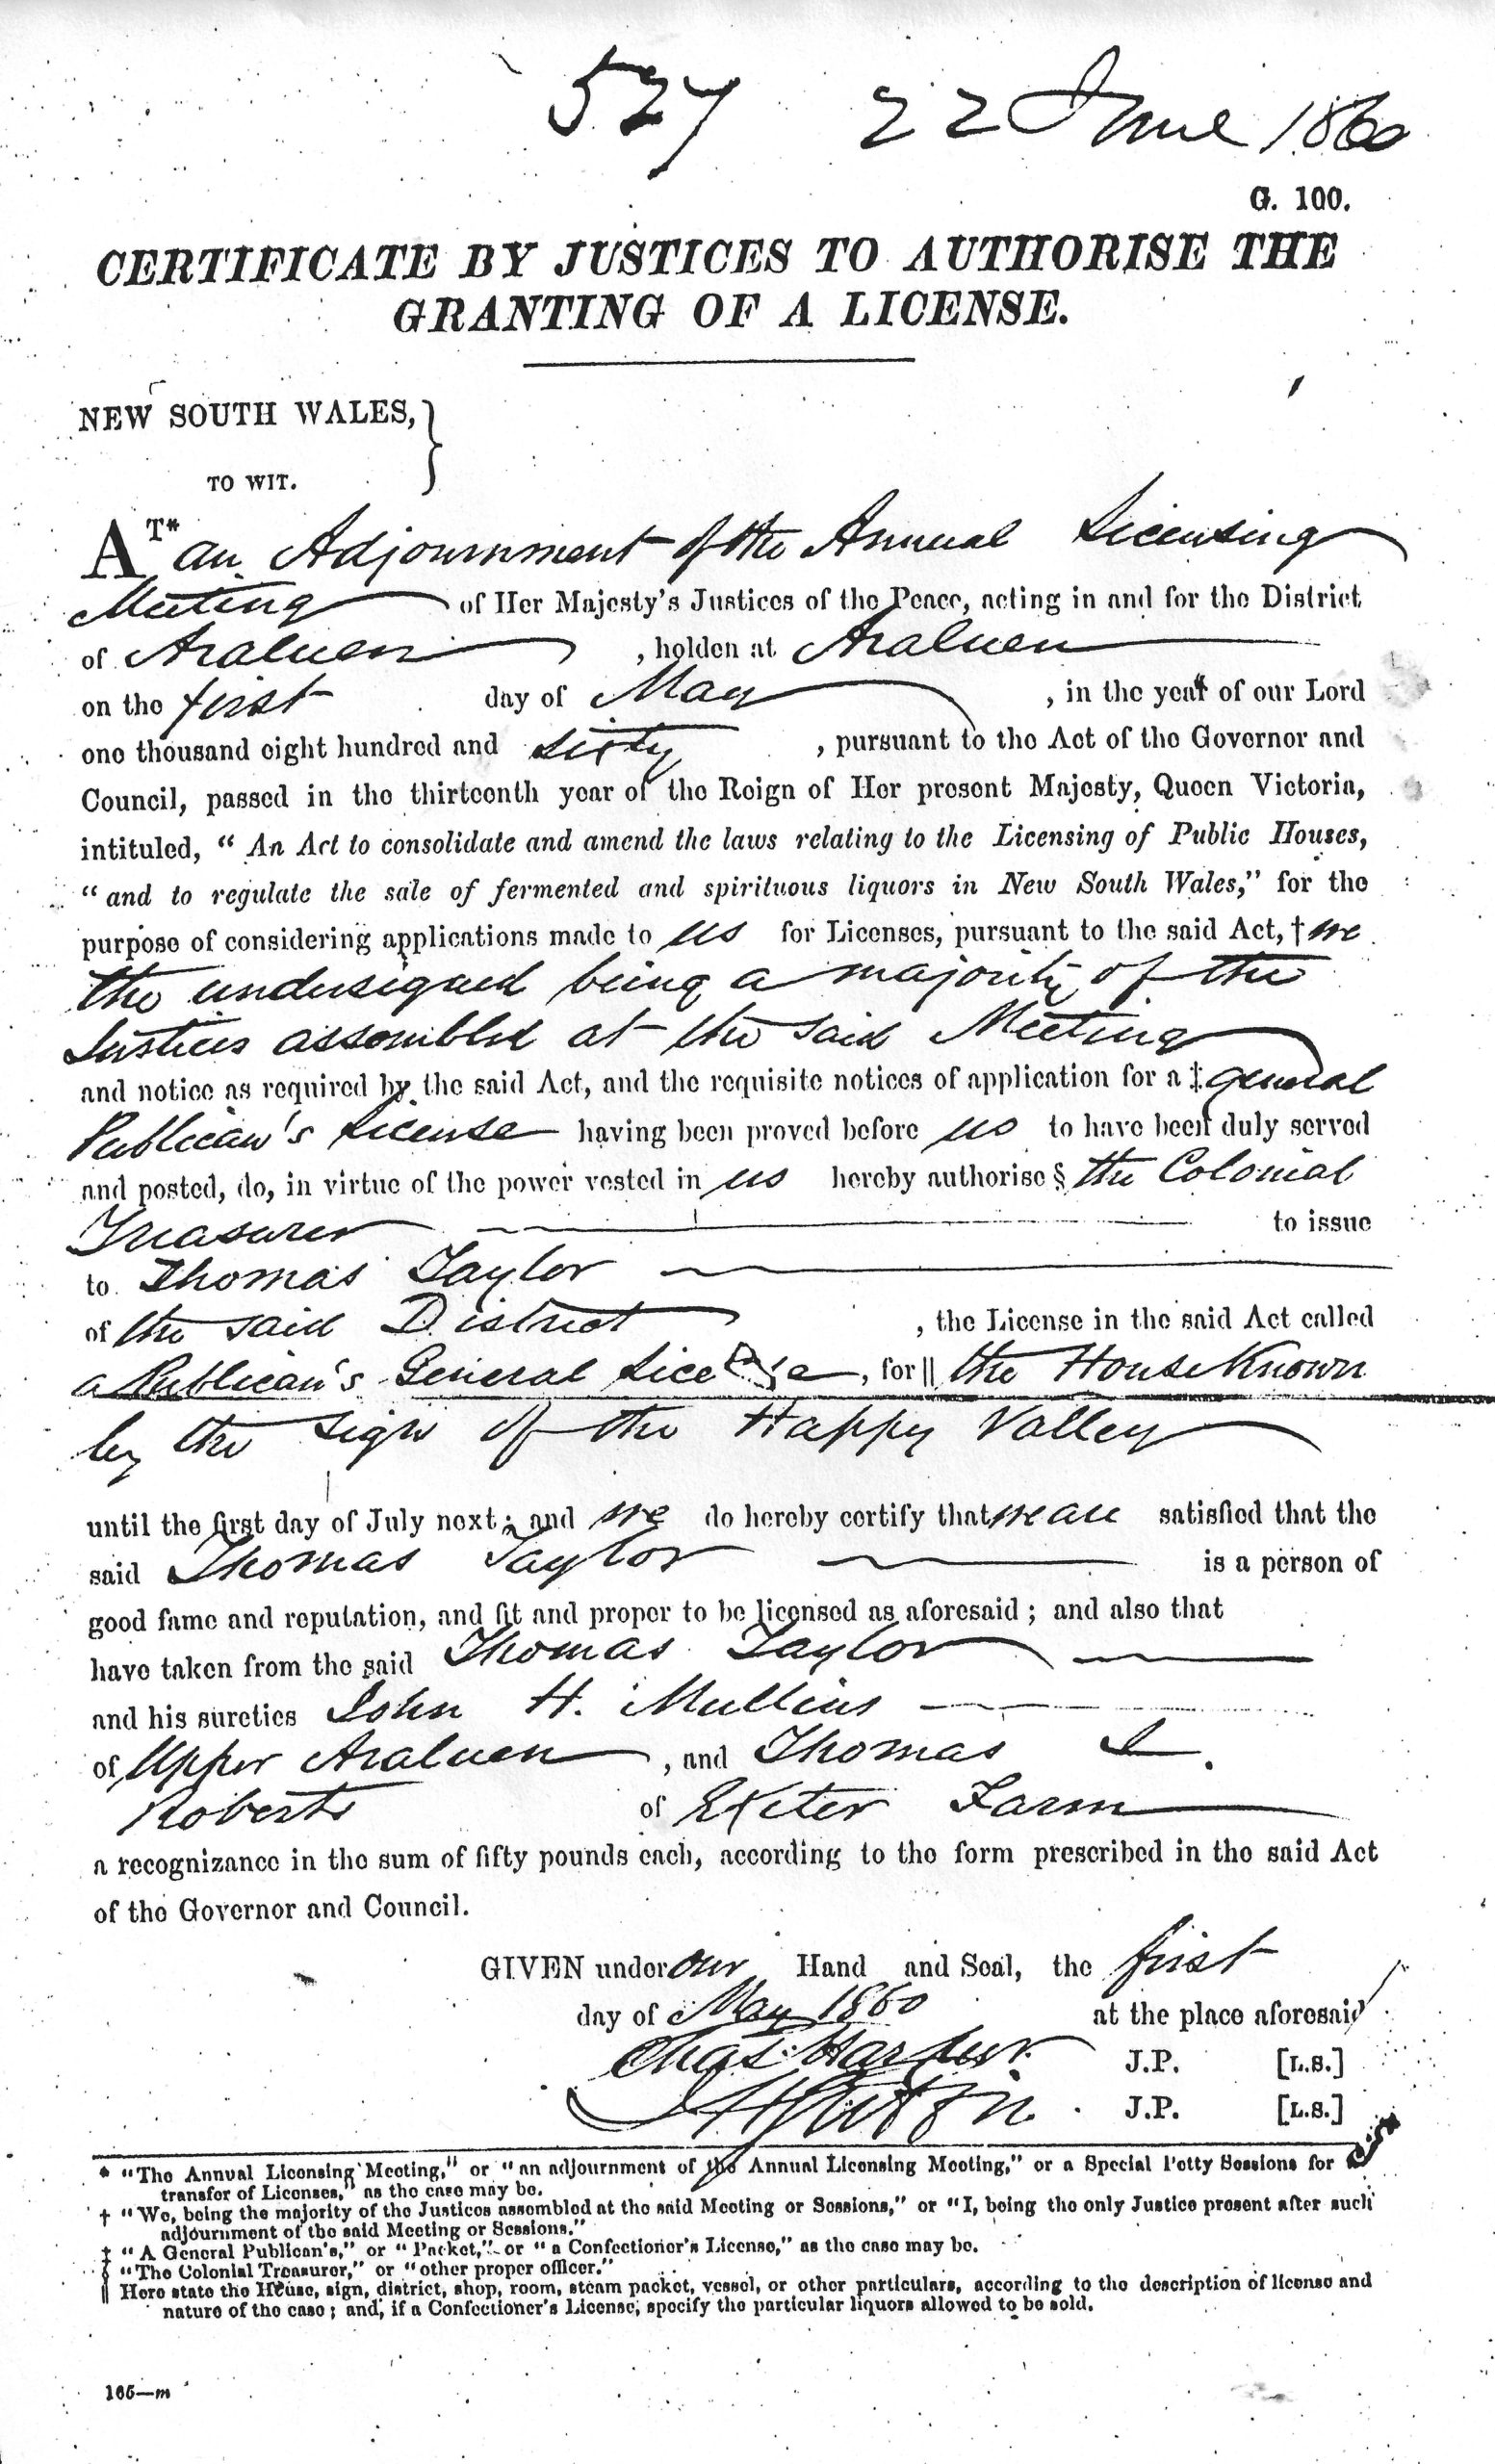 527 22 June 1860
G. 100.
CERTIFICATE BY JUSTICES TO AUTHORISE THE
GRANTING OF A LICENSE.
NEW SOUTH WALES, }
TO WIT.
AT* an Adjournment of the Annual Licensing
Meeting of Her Majesty's Justices of the Peace, acting in and for the District
of Araluen , holden at Araluen
on the first day of May , in the year of our Lord
one thousand eight hundred and sixty , pursuant to the Act of the Governor and
Council, passed in the thirteenth year of the Reign of Her present Majesty, Queen Victoria,
intituled, “ An Act to consolidate and amend the laws relating to the Licensing of Public Houses,
“ and to regulate the sale of fermented and spirituous liquors in New South Wales,” for the
purpose of considering applications made to us for Licenses, pursuant to the said Act, † we
the undersigned being a majority of the
Justices assembled at the said Meeting
and notice as required by the said Act, and the requisite notices of application for a ‡ general
Publican's License having been proved before us to have been duly served
and posted, do, in virtue of the power vested in us hereby authorise § the Colonial
Treasurer to issue
to Thomas Taylor
of the said District , the License in the said Act called
a Publican's General License , for || the House Known
by the sign of the Happy Valley
until the first day of July next ; and we do hereby certify that we are satisfied that the
said Thomas Taylor is a person of
good fame and reputation, and fit and proper to be licensed as aforesaid ; and also that
have taken from the said Thomas Taylor
and his sureties John H. Mullins
of Upper Araluen , and Thomas
Roberts of Exeter Farm
a recognizance in the sum of fifty pounds each, according to the form prescribed in the said Act
of the Governor and Council.
GIVEN under our Hand and Seal, the first
day of May 1860 at the place aforesaid
Chas. Harpur J.P. [L.S.]
J.P. [L.S.]
* “The Annual Licensing Meeting,” or “an adjournment of the Annual Licensing Meeting,” or a Special Petty Sessions for
transfer of Licenses,” as the case may be.
† “We, being the majority of the Justices assembled at the said Meeting or Sessions,” or “I, being the only Justice present after such
adjournment of the said Meeting or Sessions.”
‡ “A General Publican's,” or “Packet,” or “a Confectioner's License,” as the case may be.
§ “The Colonial Treasurer,” or “other proper officer.”
|| Here state the House, sign, district, shop, room, steam packet, vessel, or other particulars, according to the description of license and
nature of the case ; and, if a Confectioner's License, specify the particular liquors allowed to be sold.
165—m